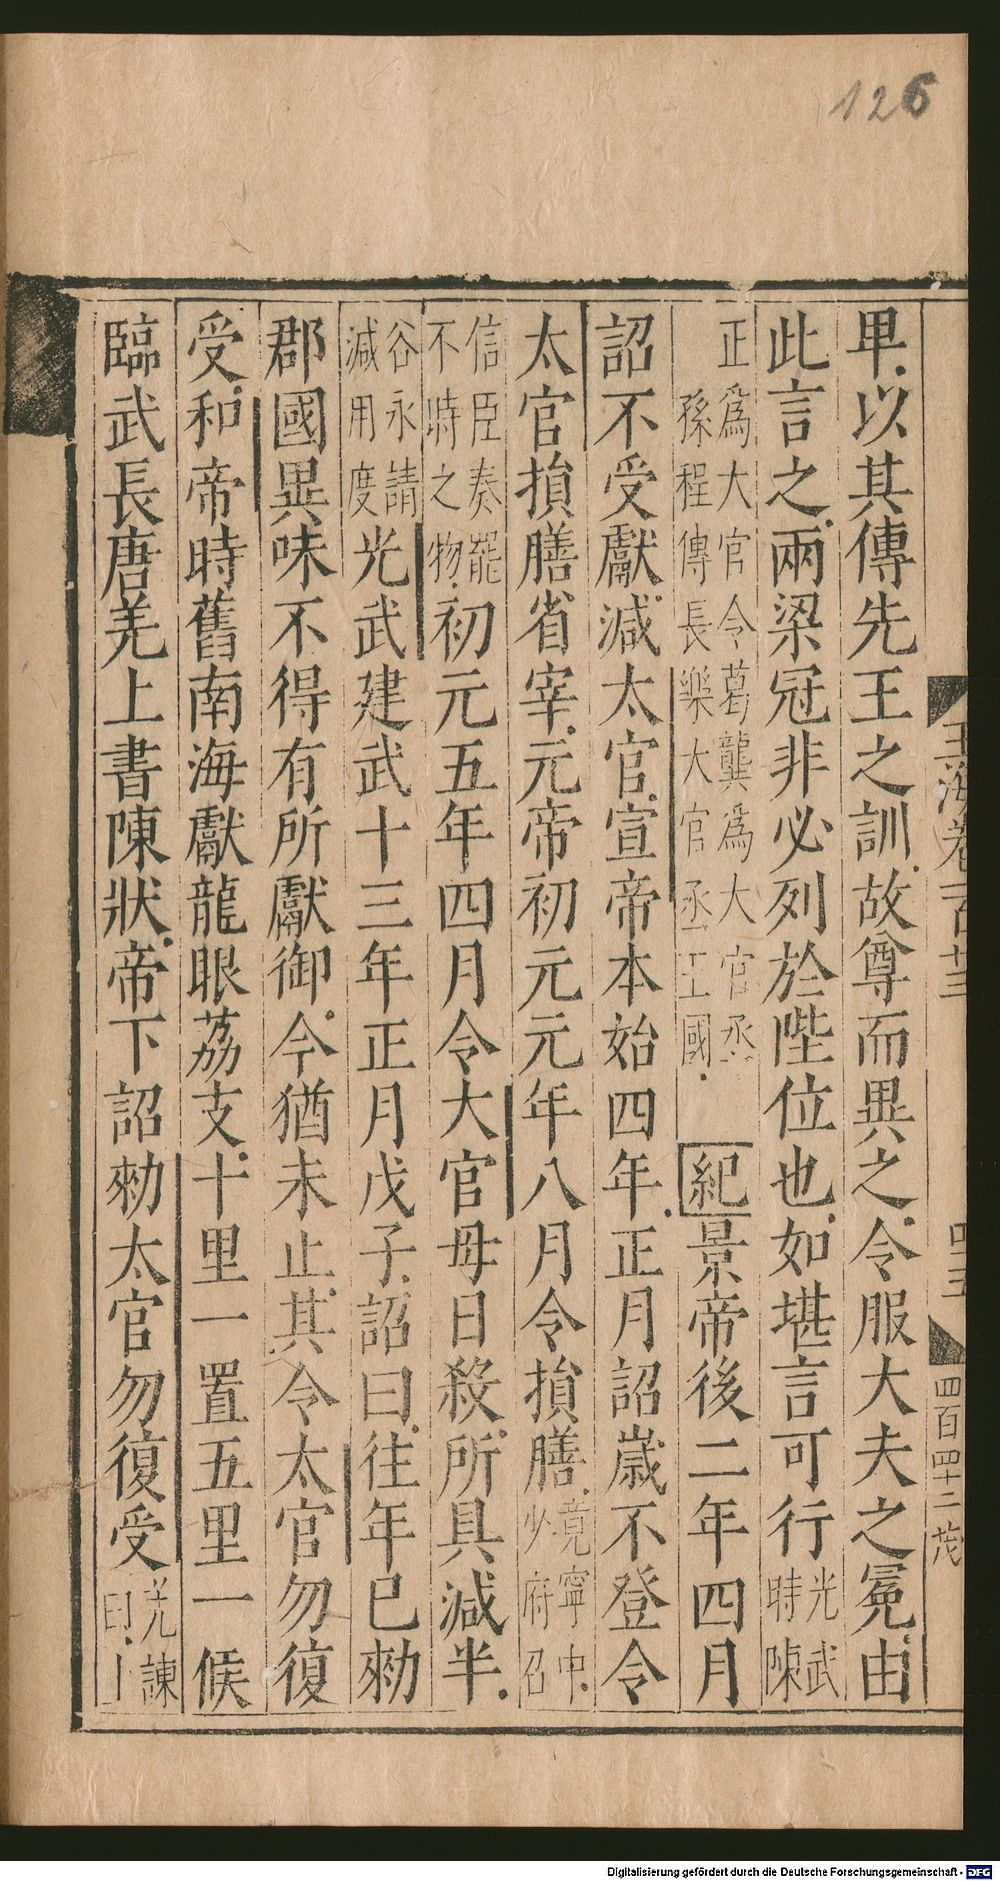 126
卑以其傳先王之訓故尊而異之令服大夫之冕由
此言之兩梁冠非必列於陛位也如堪言可行光武時陳
正爲大官令葛龔爲大官丞孫程傳長樂大官丞王國紀景帝後二年四月
詔不受獻減太官宣帝本始四年正月詔歲不登令
太官損膳省宰元帝初元元年八月令損膳竟寧中少府召
信臣奏罷不時之物初元五年四月令大官毋日殺所具減半
谷永請減用度光武建武十三年正月戊子詔曰往年已勑
郡國異味不得有所獻御今猶未止其令太官勿復
受和帝時舊南海獻龍眼荔支十里一置五里一候
臨武長唐羌上書陳狀帝下詔勑太官勿復受
玉海卷
四百四十二 茂
Digitalisierung gefördert durch die Deutsche Forschungsgemeinschaft - DFG